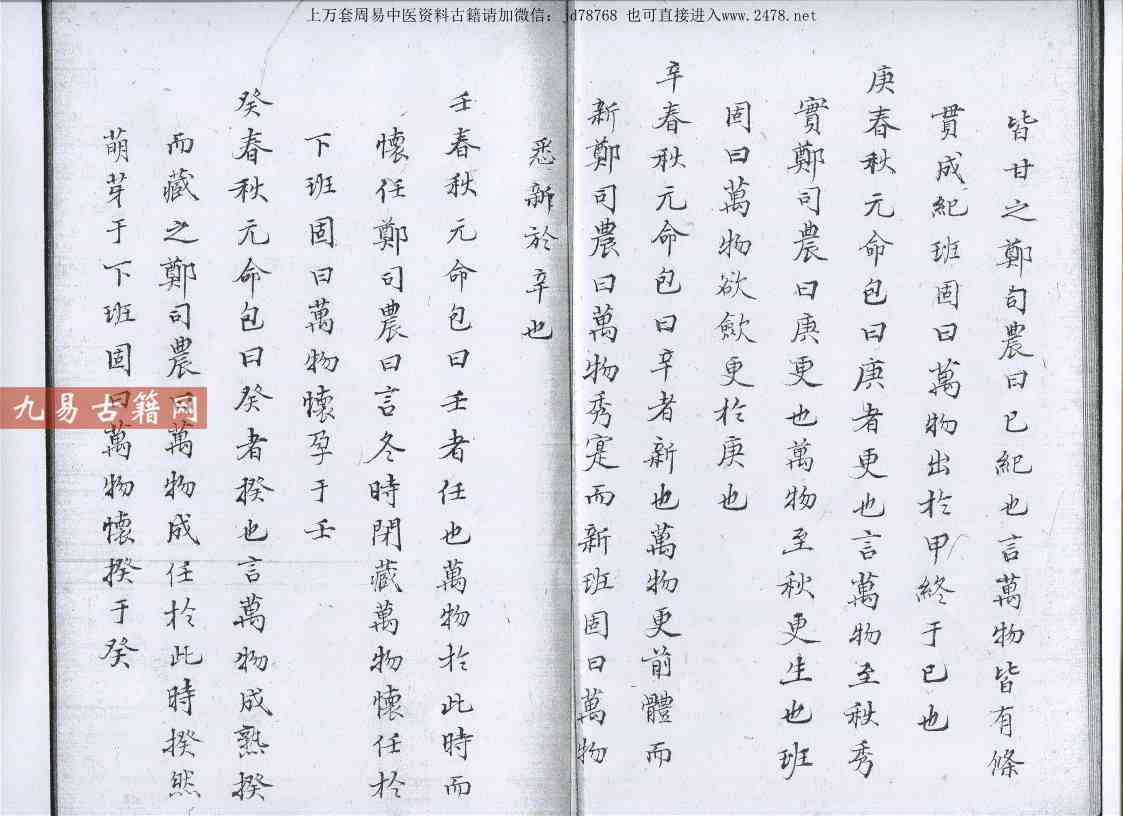 上万套周易中医资料古籍请加微信：jd78768 也可直接进入www.2478.net
皆甘之鄭司農曰已紀也言萬物皆有條
貫成紀班固曰萬物出於甲終于已也
庚春秋元命包曰庚者更也言萬物至秋秀
實鄭司農曰庚更也萬物至秋更生也班
固曰萬物欲歛更於庚也
辛春秋元命包曰辛者新也萬物更前體而
新鄭司農曰萬物秀寔而新班固曰萬物
悉新於辛也
壬春秋元命包曰壬者任也萬物於此時而
懷任鄭司農曰言冬時閉藏萬物懷任於
下班固曰萬物懷孕于壬
癸春秋元命包曰癸者揆也言萬物成熟揆
而藏之鄭司農曰萬物成任於此時揆然
萌芽于下班固曰萬物懷揆于癸
九易古籍网